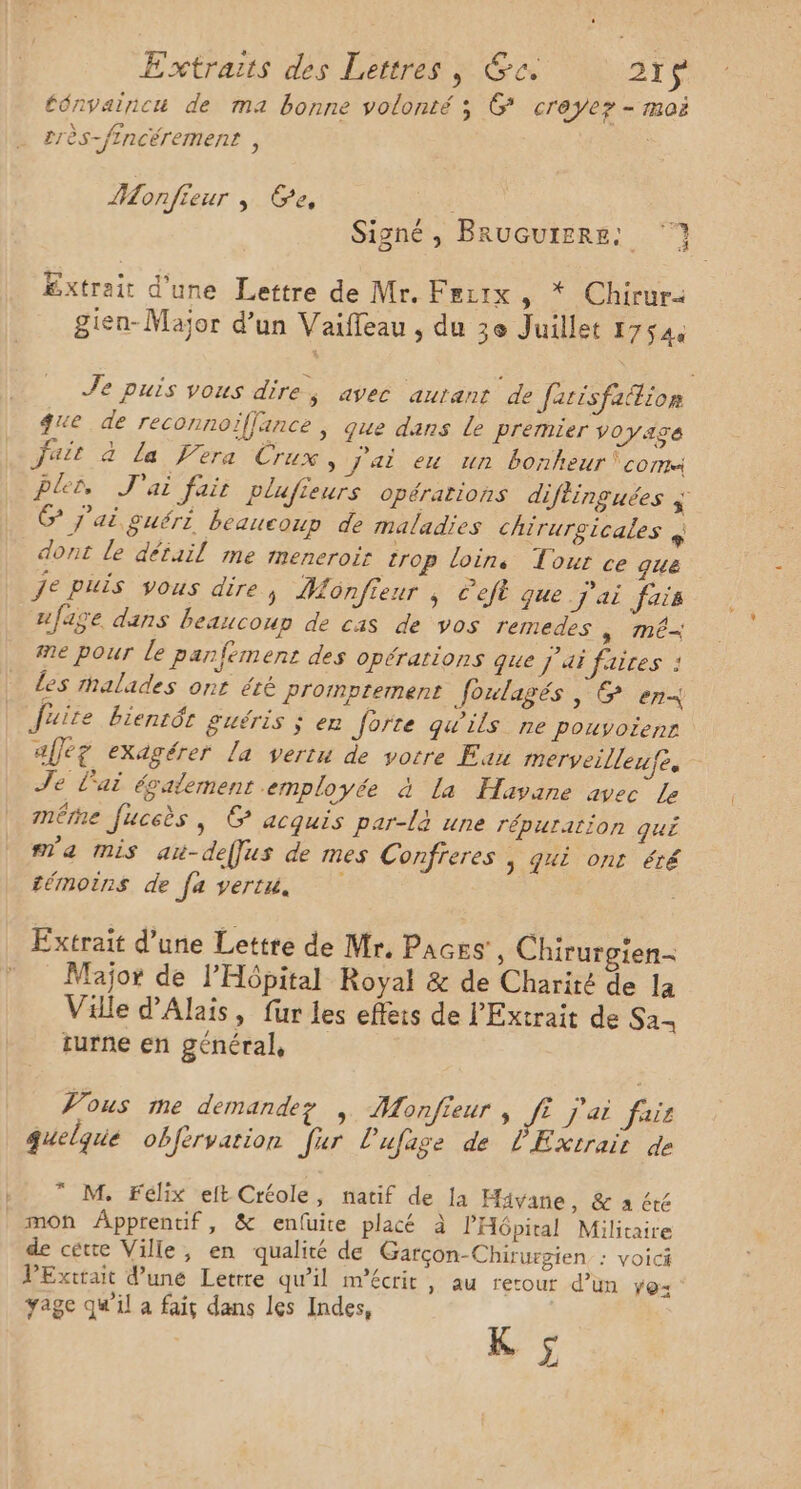 Extraits des Lettres, &c. 215
convaincu de ma bonne volonté ; & croyez-moi
très-ſincérement,
Monſieur, &c.
Signé, BRUGUIERE. ]
Extrait d'une Lettre de Mr. FELIX, * Chirur-
gien-Major d'un Vaiſſeau, du 30 Juillet 1754.
Je puis vous dire, avec autant de ſatisfaction
que de reconnoiſſance, que dans le premier voyage
fait à la Vera Crux, j'ai eu un bonheur com-
plet. J'ai fait pluſieurs opérations diſtinguées ;
& j'ai guéri beaucoup de maladies chirurgicales,
dont le détail me meneroit trop loin. Tout ce que
je puis vous dire, Monſieur, c'eſt que j'ai fait
uſage dans beaucoup de cas de vos remedes, mê-
me pour le panſement des opérations que j'ai faites :
les malades ont été promptement ſoulagés, & en-
ſuite bientôt guéris ; en ſorte qu'ils ne pouvoient
aſſez exagérer la vertu de votre Eau merveilleuſe.
Je l'ai également employée à la Havane avec le
même ſuccès, & acquis par-là une réputation qui
m'a mis au-deſſus de mes Confreres, qui ont été
témoins de ſa vertu.
Extrait d'une Lettre de Mr. PAGES, Chirurgien-
Major de l'Hôpital Royal & de Charité de la
Ville d'Alais, ſur les effets de l'Extrait de Sa-
turne en général.
Vous me demandez, Monſieur, ſi j'ai fait
quelque obſervation ſur l'uſage de l'Extrait de
* M. Félix eſt Créole, natif de la Havane, & a été
mon Apprentif, & enſuite placé à l'Hôpital Militaire
de cette Ville, en qualité de Garçon-Chirurgien : voici
l'Extrait d'une Lettre qu'il m'écrit, au retour d'un vo-
yage qu'il a fait dans les Indes,
K 5